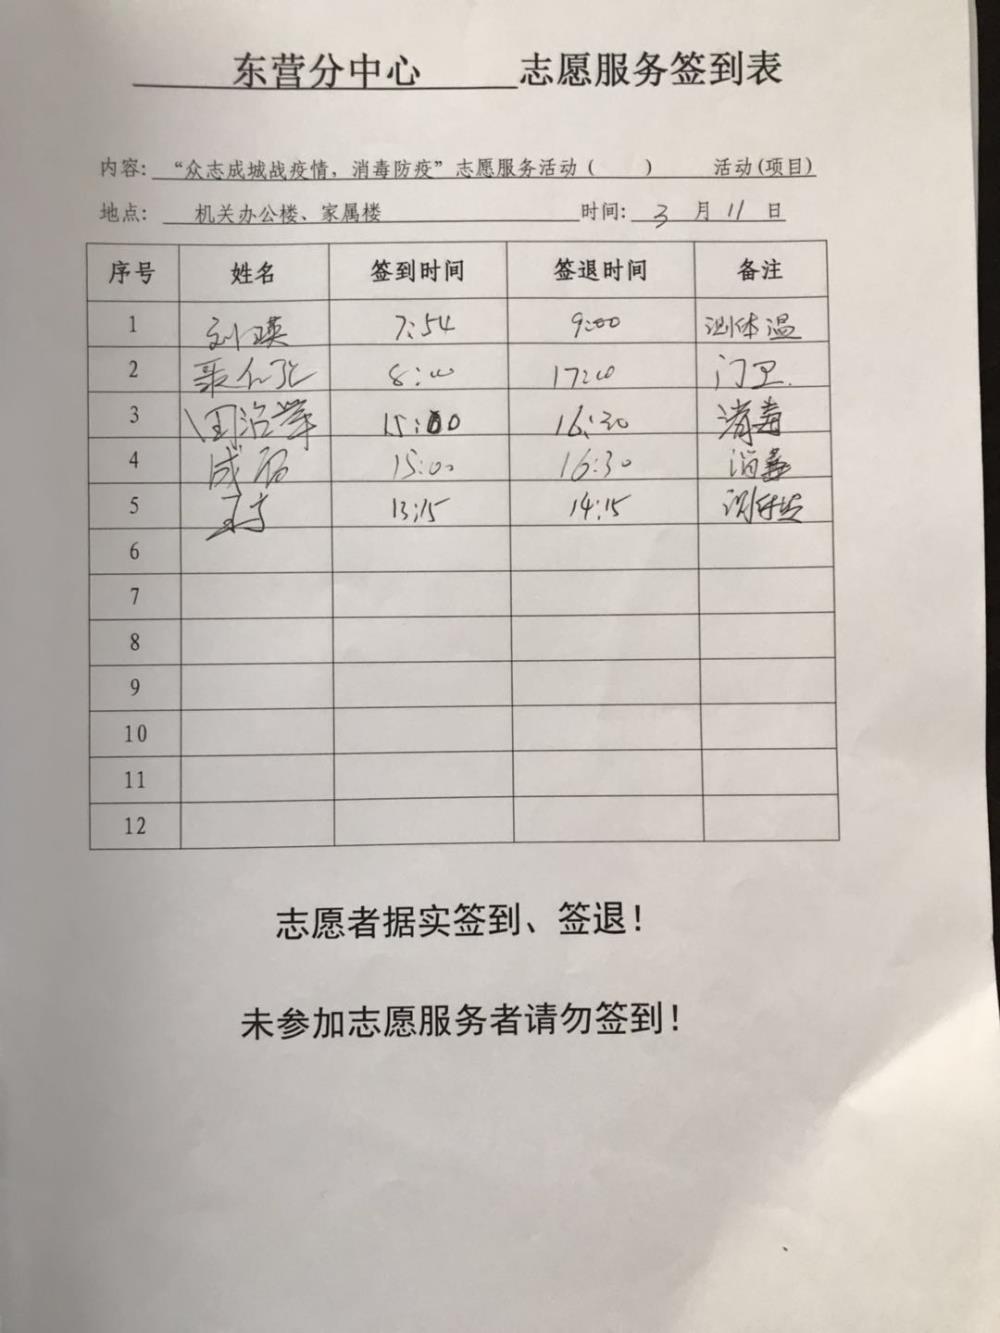 东营分中心 志愿服务签到表
内容: “众志成城战疫情，消毒防疫”志愿服务活动（ ） 活动(项目)
地点: 机关办公楼、家属楼 时间: 3 月 11 日
序号 姓名 签到时间 签退时间 备注
1 刘瑛 7:54 9:00 测体温
2 8:00 17:00 门卫.
3 田沿革 15:00 16:30 消毒
4 15:00 16:30 消毒
5 13:15 14:15 测体温
6
7
8
9
10
11
12
志愿者据实签到、签退！
未参加志愿服务者请勿签到！